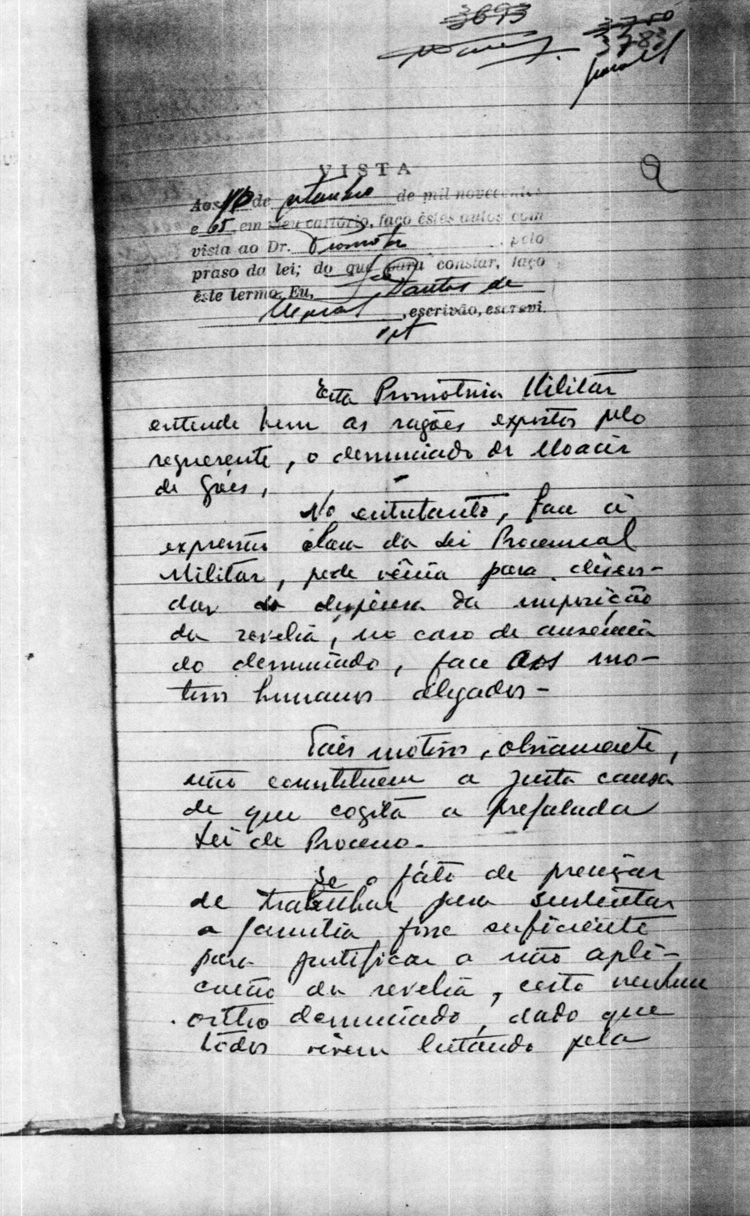 3693
3750
3783
VISTA
Aos 10 de setembro de mil novecentos
e 65 em meu cartório, faço êstes autos com
vista ao Dr. Promotor, pelo
praso da lei; do que para constar, faço
êste termo. Eu, Dantas de
, escrivão, escrevi.
Esta Promotoria Militar
entende bem as razões expostas pelo
requerente, o denunciado dr Moacir
de Góes,
No entretanto, face à
expressão clara da Lei Processual
Militar, pede vênia para discor-
dar da dispensa da imposição
da revelia, no caso de ausência
do denunciado, face aos mo-
tivos humanos alegados -
Tais motivos, obviamente,
não constituem a justa causa
de que cogita a prefalada
Lei de Processo -
Se o fáto de precisar
de trabalhar para sustentar
a família fosse suficiente
para justificar a não apli-
cação da revelia, certo nenhum
outro denunciado, dado que
todos vivem lutando pela